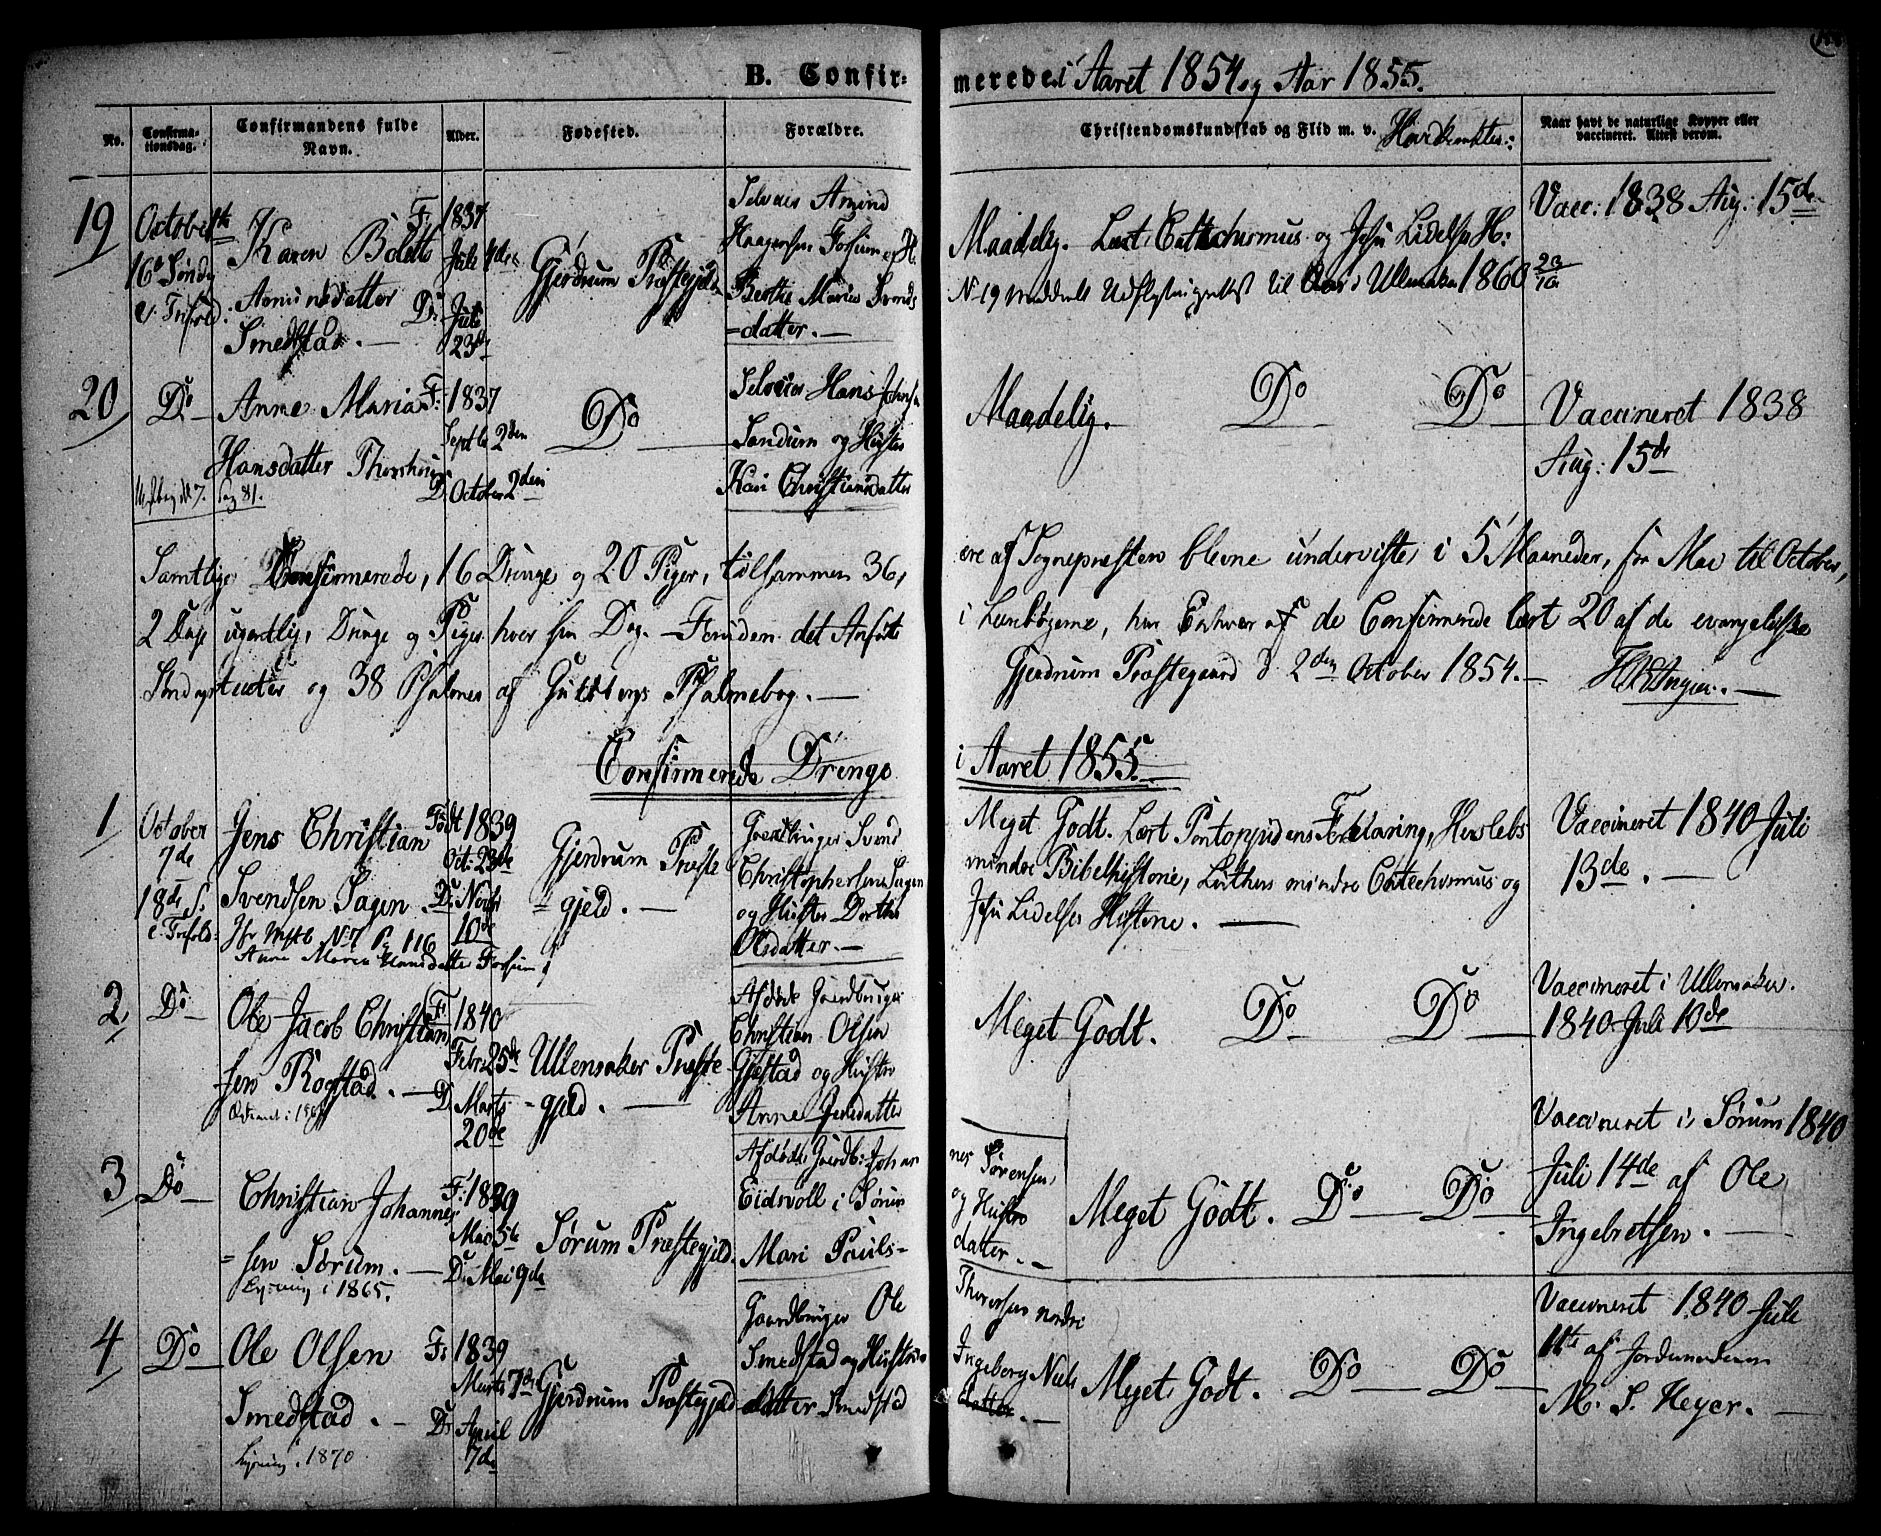 B. Confir= merede i Aaret 1854 og Aar 1855.
No.
Confirma-
tionsdag.
Confirmandens fulde
Navn.
Alder.
Fødested.
Forældre.
Christendomskundskab og Flid m. v.
Naar havt de naturlige Kopper eller
vaccineret. Attest derom.
19
October
16de Sønd
e. Trifold:
Karen Bolette
Asmundsdatter
Smedstad. —
F. 1837
Juli
D: Juli
23de
Gjerdrum Præstegjeld
Selveier Asmund
Haagensen Fossum og H.
Berthe Marie Svends
=datter. —
Maadelig. Læst Catechismus og Jesu Lidelses H:
N 19 meddeelt Udflytningsattest til Ullensaker 1860 23/10
Vacc: 1838 Aug: 15de
20
Do —
Anne Maria
Hansdatter
pag 81.
F: 1837
Septbr 2den
D. October 2den
Do —
Selveier Hans Johnsen
Sandum og Hustru
Kari Christiansdatter
Maadelig. — Do — Do —
Vaccineret 1838
Aug: 15de
Samtlige Confirmerede, 16 Drenge og 20 Piger, tilsammen 36,
ere af Sognepresten blevne underviste i 5 Maaneder, fra Mai til October,
2 Dage ugentlig, Drenge og Piger hver sin Dag. — Foruden det Anførte
i Lærebøgerne, har Enhver af de Confirmerede lært 20 af de evangeliske
Søndagstexter og 38 Psalmer af Guldbergs Psalmebog. —
Gjerdrum Præstegaard d. 2den October 1854. —
Confirmerede Drenge i Aaret 1855. —
1
October
7de
18de S.
e. Trifold:
Jens Christian
Svendsen Sagen.
Jfr Mstb No 7 Pg 116
Anne Maria Hansdatter Fossum
Født 1839
Oct: 23de
D: Novbr
10de
Gjerdrum Præste
=gjeld. —
Gaardbruger Svend
Christophersen Sagen
og Hustru Dorthe
Olsdatter. —
Meget Godt. Læst Pontoppidans Forklaring, Herslebs
mindre Bibelhistorie, Luthers mindre Catechismus og
Jesu Lidelses Historie. —
Vaccineret 1840 Juli
13de. —
2
Do —
Ole Jacob Christian
sen Rogstad. —
F. 1840
Febr: 25de
D. Marts
20de
Ullensaker Præste
=gjeld. —
Afdøde Gaardbruger
Christian Olsen
Gjestad og Hustru
Anne Jensdatter
Meget Godt. Do — Do —
Vaccineret i Ullensaker.
1840 Juli 10de
3
Do —
Christian Johannes
=sen Sørum. —
Lysning i 1865.
F: 1839
Mai 5te
D: Mai 9de
Sørum Præstegjeld.
Afdøde Gaardb: Johan
nes Sørensen,
Eidsvoll i Sørum
og Hustru
Mari Pauls-
datter. —
Meget Godt. Do — Do —
Vaccineret i Sørum 1840
Juli 14de af Ole
Ingebretsen. —
4
Do —
Ole Olsen
Smedstad. —
Lysning i 1870
F: 1839
Marts 7de
D: April
7de
Gjerdrum Præstegjeld
Gaardbruger Ole
Thoresen nordre
Smedstad og Hustru
Ingeborg Niels
datter Smedstad
datter. —
Meget Godt. Do — Do —
Vaccineret 1840 Juli
11te af Jordemoderen
M. S. Heyer. —